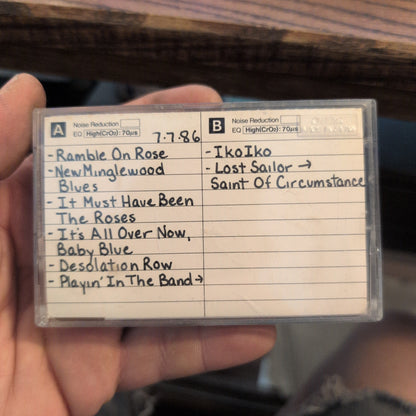 A Noise Reduction
EQ High(CrO2): 70µs 7.7.86
- Ramble On Rose
- New Minglewood
Blues
- It Must Have Been
The Roses
- It's All Over Now,
Baby Blue
- Desolation Row
- Playin' In The Band →
B Noise Reduction
EQ High(CrO2): 70µs
- Iko Iko
- Lost Sailor →
Saint Of Circumstance